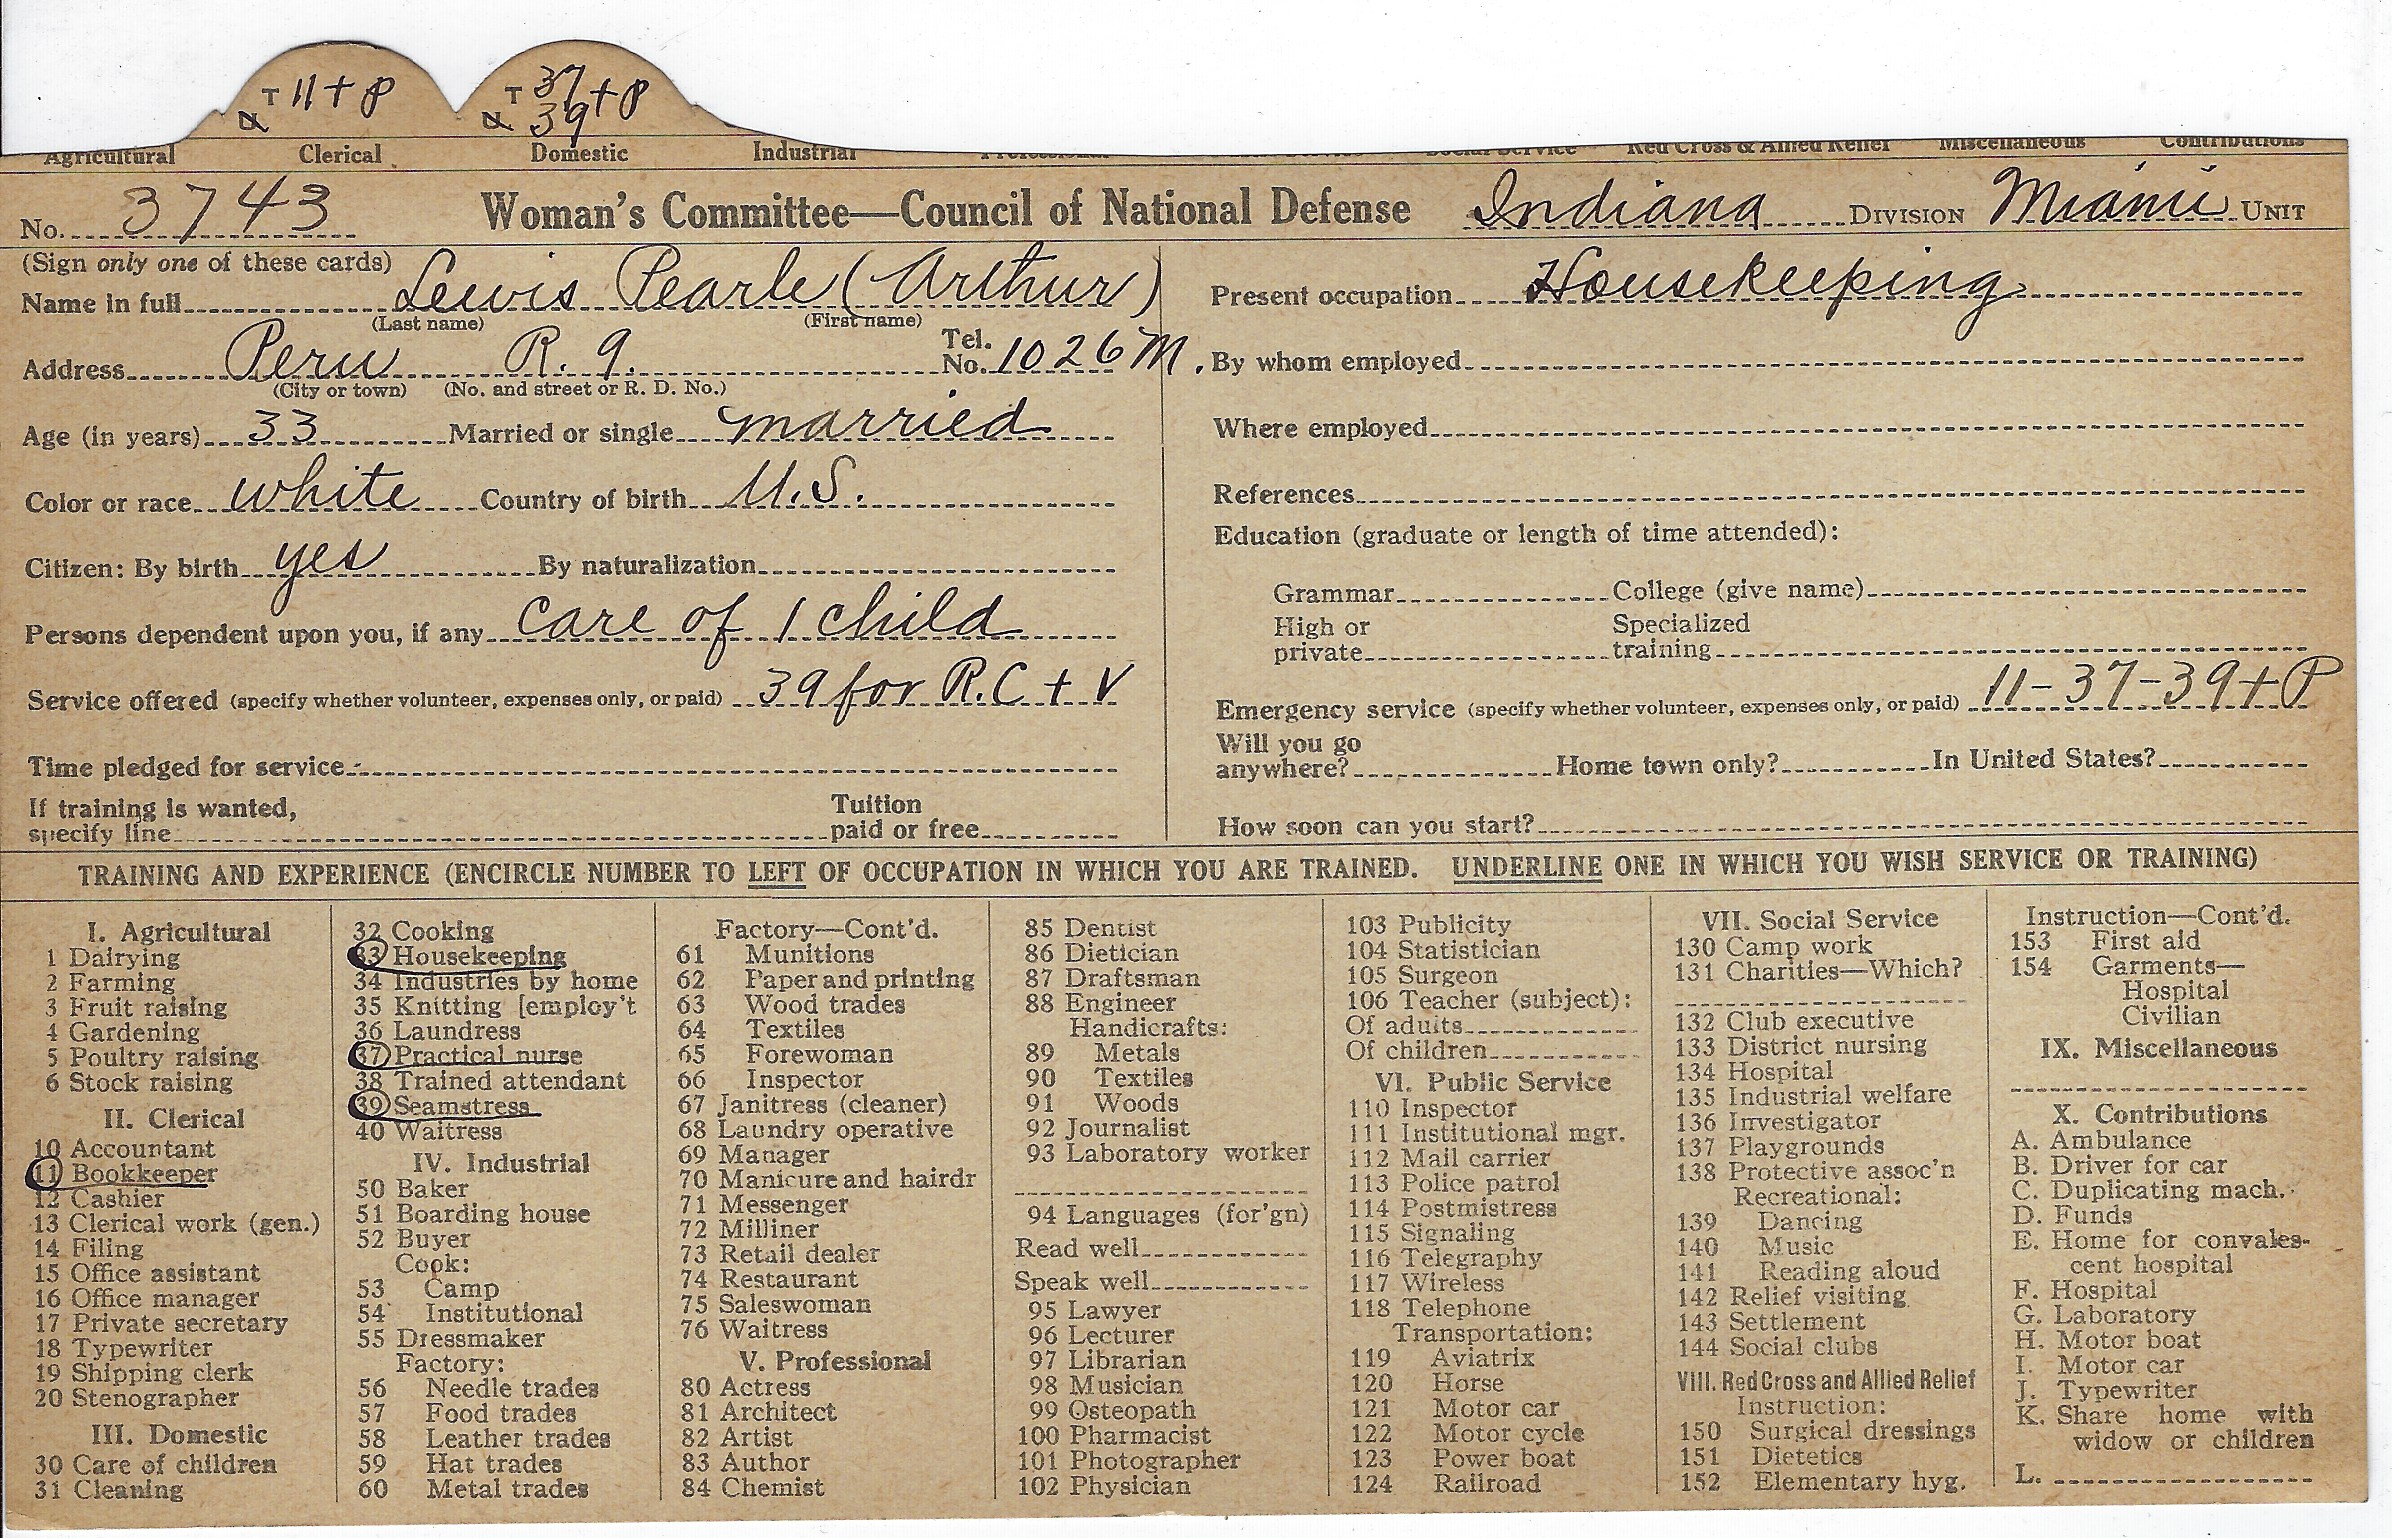 T 11 + P T 37 + P
39
Agricultural Clerical Domestic Industrial Social Service Red Cross & Allied Relief Miscellaneous Contributions
No. 3743 Woman's Committee—Council of National Defense Indiana DIVISION Miami UNIT
(Sign only one of these cards)
Name in full Lewis Pearle (Arthur)
(Last name) (First name)
Address Peru R. 9. Tel. No. 1026 M.
(City or town) (No. and street or R. D. No.)
Age (in years) 33 Married or single married
Color or race white Country of birth U.S.
Citizen: By birth yes By naturalization
Persons dependent upon you, if any care of 1 child
Service offered (specify whether volunteer, expenses only, or paid) 39 for R.C + V
Time pledged for service
If training is wanted,
specify line
Tuition
paid or free
Present occupation Housekeeping
By whom employed
Where employed
References
Education (graduate or length of time attended):
Grammar College (give name)
High or
private
Specialized
training
Emergency service (specify whether volunteer, expenses only, or paid) 11-37-39 + P
Will you go
anywhere? Home town only? In United States?
How soon can you start?
TRAINING AND EXPERIENCE (ENCIRCLE NUMBER TO LEFT OF OCCUPATION IN WHICH YOU ARE TRAINED. UNDERLINE ONE IN WHICH YOU WISH SERVICE OR TRAINING)
I. Agricultural
1 Dairying
2 Farming
3 Fruit raising
4 Gardening
5 Poultry raising
6 Stock raising
II. Clerical
10 Accountant
11 Bookkeeper
12 Cashier
13 Clerical work (gen.)
14 Filing
15 Office assistant
16 Office manager
17 Private secretary
18 Typewriter
19 Shipping clerk
20 Stenographer
III. Domestic
30 Care of children
31 Cleaning
32 Cooking
33 Housekeeping
34 Industries by home
35 Knitting [employ't
36 Laundress
37 Practical nurse
38 Trained attendant
39 Seamstress
40 Waitress
IV. Industrial
50 Baker
51 Boarding house
52 Buyer
Cook:
53 Camp
54 Institutional
55 Dressmaker
Factory:
56 Needle trades
57 Food trades
58 Leather trades
59 Hat trades
60 Metal trades
Factory—Cont'd.
61 Munitions
62 Paper and printing
63 Wood trades
64 Textiles
65 Forewoman
66 Inspector
67 Janitress (cleaner)
68 Laundry operative
69 Manager
70 Manicure and hairdr
71 Messenger
72 Milliner
73 Retail dealer
74 Restaurant
75 Saleswoman
76 Waitress
V. Professional
80 Actress
81 Architect
82 Artist
83 Author
84 Chemist
85 Dentist
86 Dietician
87 Draftsman
88 Engineer
Handicrafts:
89 Metals
90 Textiles
91 Woods
92 Journalist
93 Laboratory worker
94 Languages (for'gn)
Read well
Speak well
95 Lawyer
96 Lecturer
97 Librarian
98 Musician
99 Osteopath
100 Pharmacist
101 Photographer
102 Physician
103 Publicity
104 Statistician
105 Surgeon
106 Teacher (subject):
Of adults
Of children
VI. Public Service
110 Inspector
111 Institutional mgr.
112 Mail carrier
113 Police patrol
114 Postmistress
115 Signaling
116 Telegraphy
117 Wireless
118 Telephone
Transportation:
119 Aviatrix
120 Horse
121 Motor car
122 Motor cycle
123 Power boat
124 Railroad
VII. Social Service
130 Camp work
131 Charities—Which?
132 Club executive
133 District nursing
134 Hospital
135 Industrial welfare
136 Investigator
137 Playgrounds
138 Protective assoc'n
Recreational:
139 Dancing
140 Music
141 Reading aloud
142 Relief visiting
143 Settlement
144 Social clubs
VIII. Red Cross and Allied Relief
Instruction:
150 Surgical dressings
151 Dietetics
152 Elementary hyg.
Instruction—Cont'd.
153 First aid
154 Garments—
Hospital
Civilian
IX. Miscellaneous
X. Contributions
A. Ambulance
B. Driver for car
C. Duplicating mach.
D. Funds
E. Home for convales-
cent hospital
F. Hospital
G. Laboratory
H. Motor boat
I. Motor car
J. Typewriter
K. Share home with
widow or children
L.